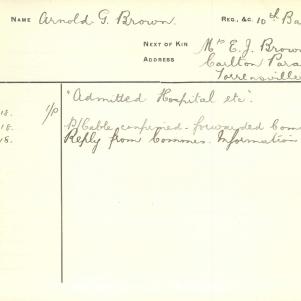 NAME Arnold G. Brown REG., &C. 10th Ba
NEXT OF KIN Mrs E. J. Brow
ADDRESS Carlton Para
Torrensville
"Admitted Hospital etc".
18. 1/0
18. P/Cable confirmed - forwarded Com
18. Reply from Commes. Information